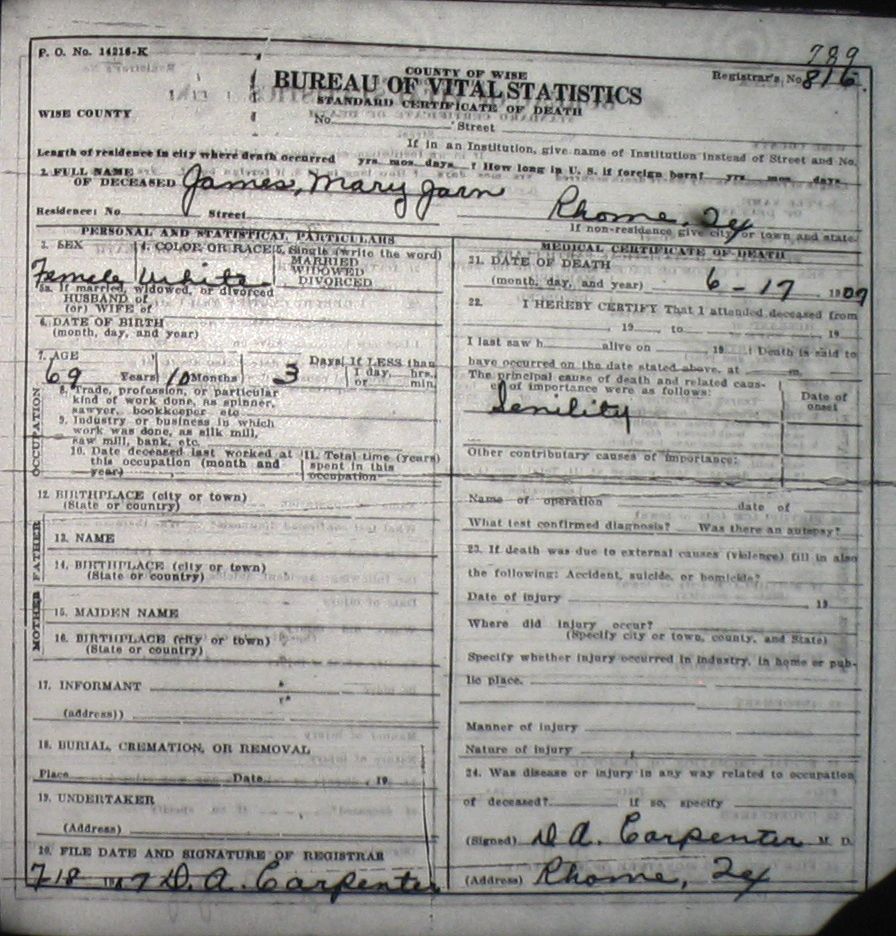 F. O. No. 14216-K
789
COUNTY OF WISE
Registrar's No. 816
BUREAU OF VITAL STATISTICS
STANDARD CERTIFICATE OF DEATH
WISE COUNTY
No. Street
If in an Institution, give name of Institution instead of Street and No.
Length of residence in city where death occurred yrs. mos. days. ? How long in U. S. if foreign born? yrs. mos. days.
2. FULL NAME OF DECEASED James, Mary Jarn
Rhome, Tex
Residence: No. Street
If non-residence give city or town and state.
PERSONAL AND STATISTICAL PARTICULARS
3. SEX
Female
4. COLOR OR RACE
White
5. Single (write the word)
MARRIED
WIDOWED
DIVORCED
5a. If married, widowed, or divorced
HUSBAND of
(or) WIFE of
6. DATE OF BIRTH
(month, day, and year)
7. AGE
69 Years 10 Months 3 Days
If LESS than
1 day, hrs.
or min.
OCCUPATION
8. Trade, profession, or particular
kind of work done, as spinner,
sawyer, bookkeeper etc
9. Industry or business in which
work was done, as silk mill,
saw mill, bank, etc.
10. Date deceased last worked at
this occupation (month and
year)
11. Total time (years)
spent in this
occupation
12. BIRTHPLACE (city or town)
(State or country)
FATHER
13. NAME
14. BIRTHPLACE (city or town)
(State or country)
MOTHER
15. MAIDEN NAME
16. BIRTHPLACE (city or town)
(State or country)
17. INFORMANT
(address))
18. BURIAL, CREMATION, OR REMOVAL
Place Date , 19
19. UNDERTAKER
(Address)
20. FILE DATE AND SIGNATURE OF REGISTRAR
7-18 D. A. Carpenter
MEDICAL CERTIFICATE OF DEATH
21. DATE OF DEATH
(month, day, and year) 6-17 1909
22. I HEREBY CERTIFY That I attended deceased from
, 19 , to , 19
I last saw h alive on , 19 ! Death is said to
have occurred on the date stated above, at m.
The principal cause of death and related caus-
es of importance were as follows:
Date of
onset
Senility
Other contributary causes of importance:
Name of operation date of
What test confirmed diagnosis? Was there an autopsy?
23. If death was due to external causes (violence) fill in also
the following: Accident, suicide, or homicide?
Date of injury , 19
Where did injury occur?
(Specify city or town, county, and State)
Specify whether injury occurred in industry, in home or pub-
lic place.
Manner of injury
Nature of injury
24. Was disease or injury in any way related to occupation
of deceased? if so, specify
(Signed) D A. Carpenter M. D.
(Address) Rhome, Tex